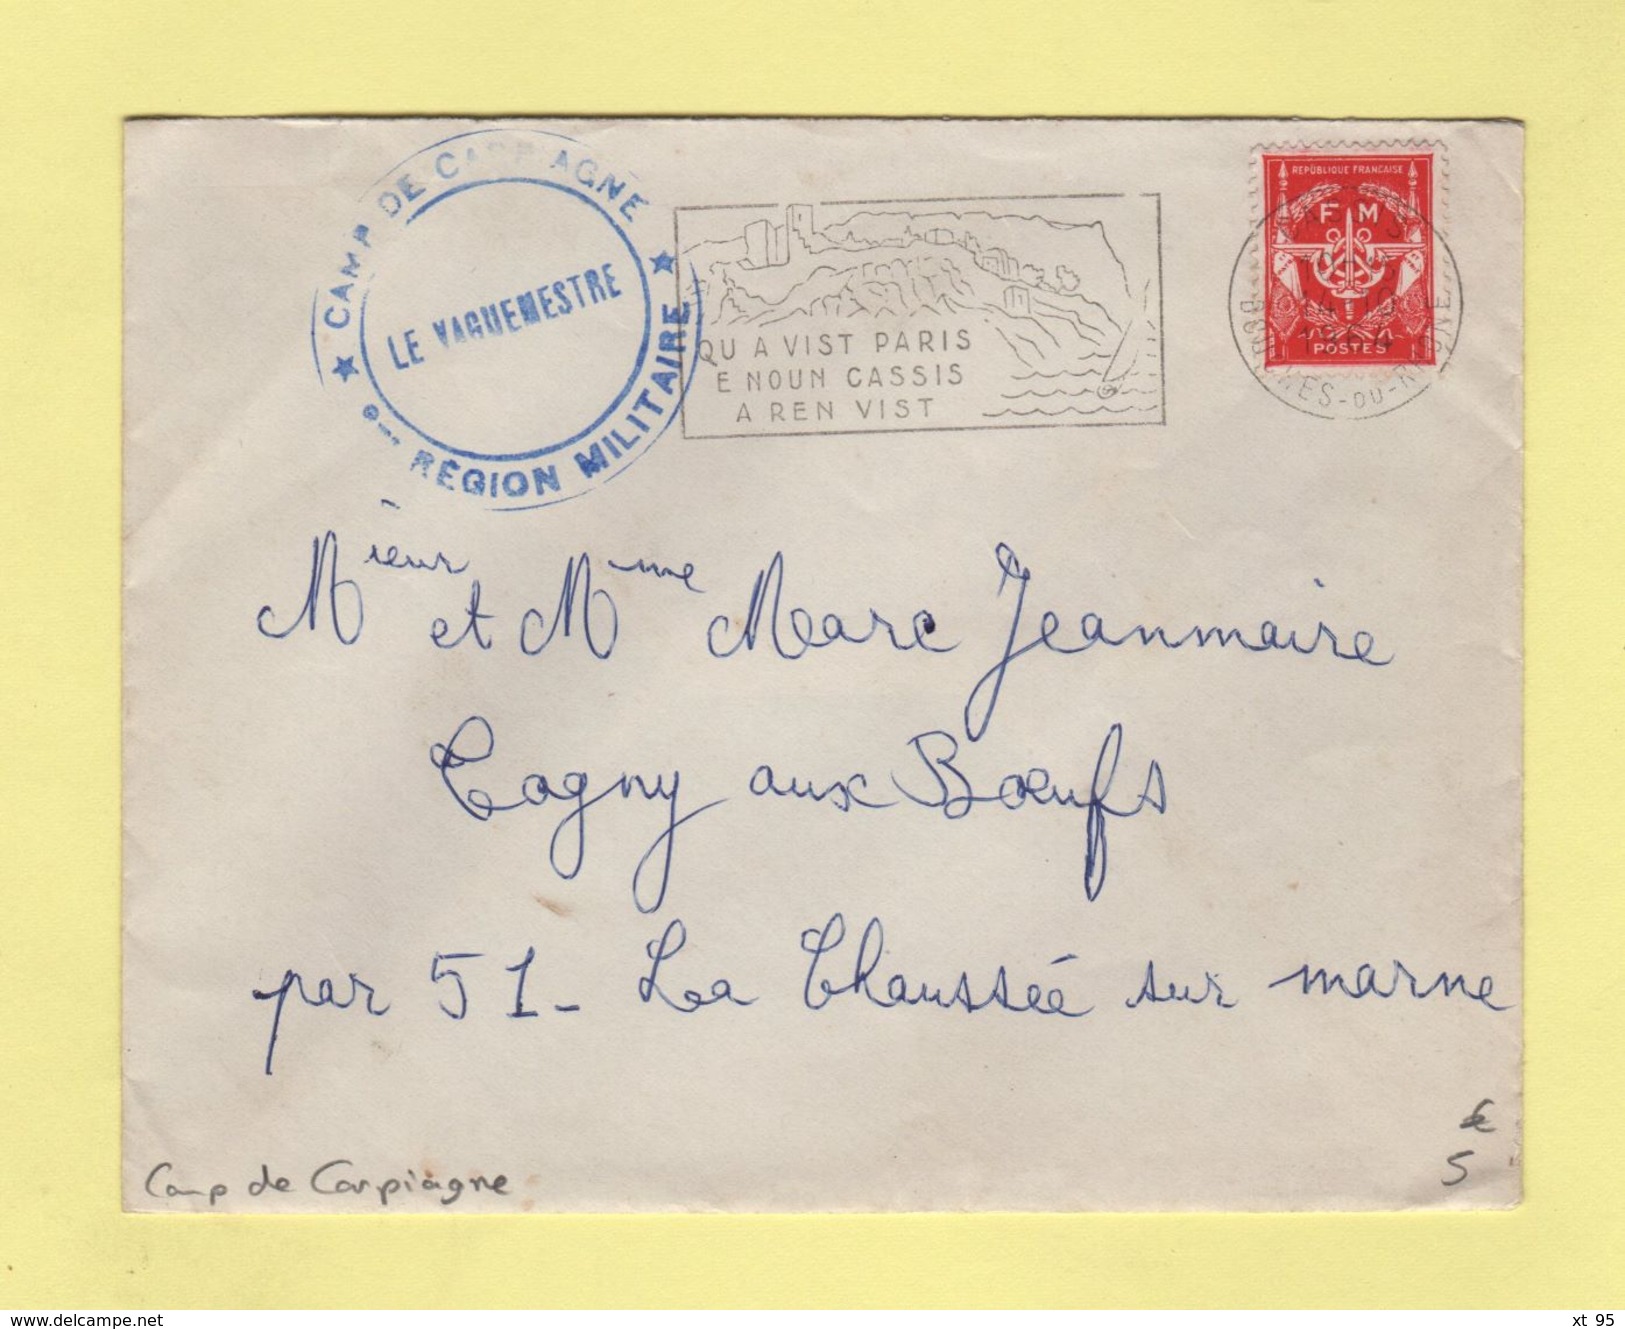 CAMP DE CARPIAGNE
LE VAGUEMESTRE
9eme RÉGION MILITAIRE
QU A VIST PARIS
E NOUN CASSIS
A REN VIST
REPUBLIQUE FRANCAISE
F M
POSTES
CASSIS
14-10
1964
BSR DU-RHONE
Mieur et Mme Marc Jeanmaire
Togny aux Bœufs
par 51 - La Chaussée sur marne
Camp de Carpiagne
€
5
xt 95